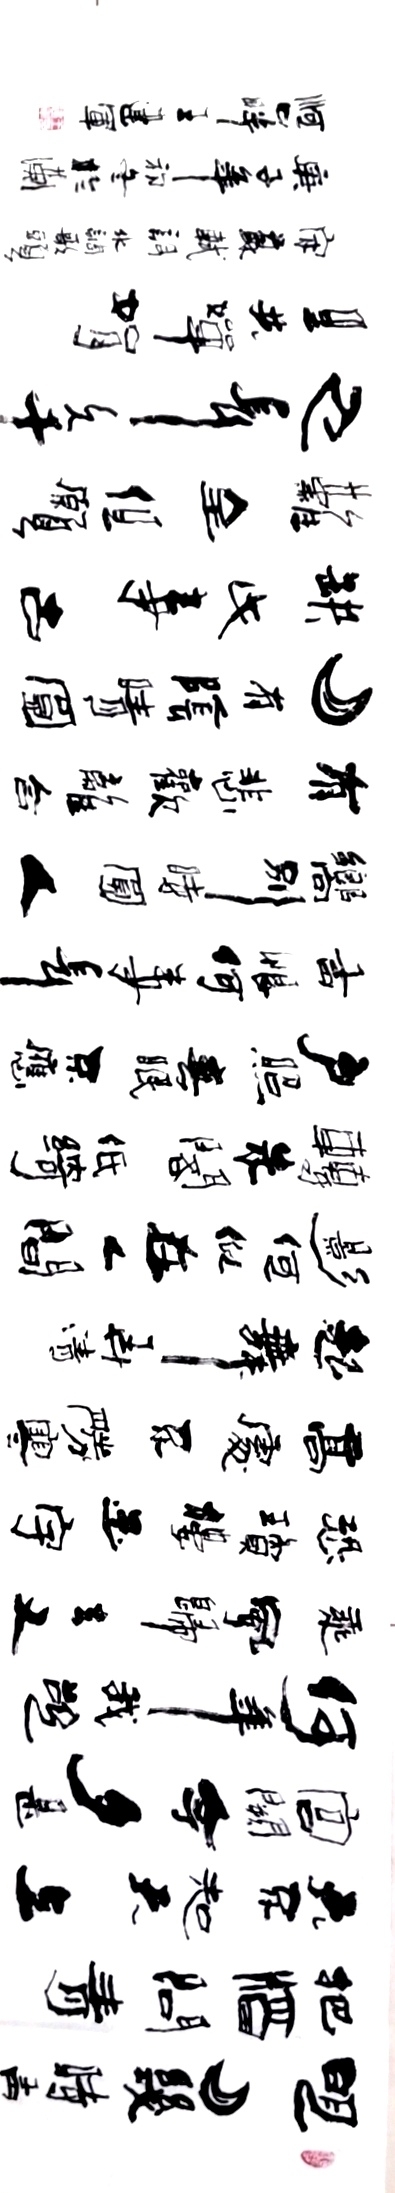 明月幾時有
把酒問青
天不知天上
宮闕今夕是
何年我欲
乘風歸去又
恐瓊樓玉宇
高處不勝寒
起舞弄清
影何似在人間
轉朱閣低綺
户照無眠不應
有恨何事長
嚮別時圓人
有悲歡離合
月有陰晴圓
缺此事古
難全但願
人長久千
里共嬋娟
宋蘇軾詞水調歌頭
庚子年初冬於蘭
王建軍